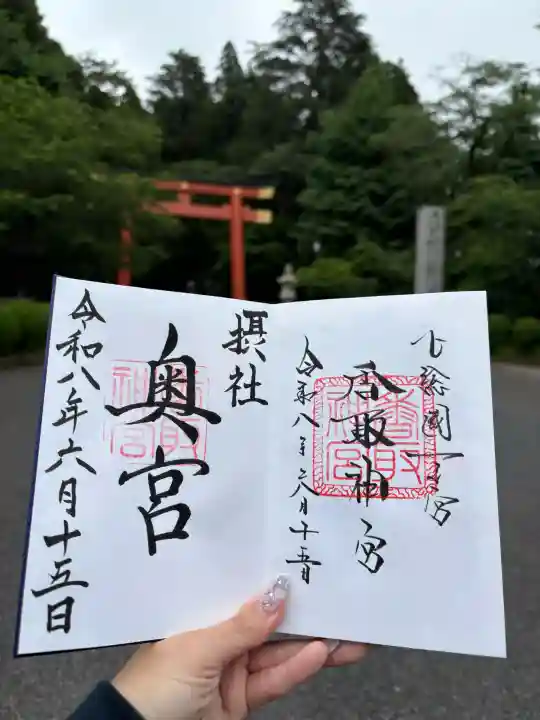 下総國一之宮
香取神宮
令和八年六月十五日
香取
神宮
摂社
奥宮
令和八年六月十五日
香取
神宮